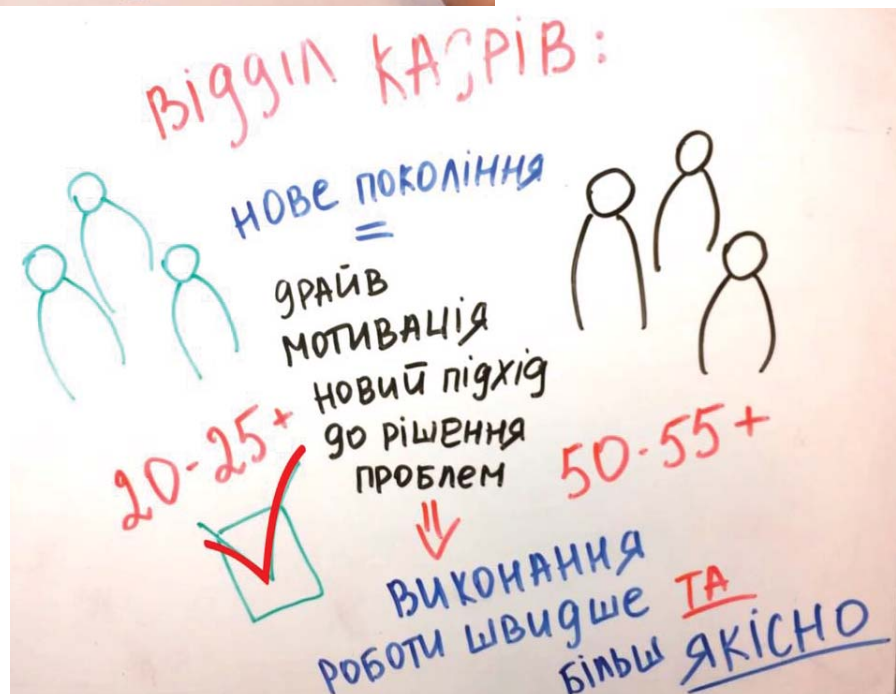 ВІДДІЛ КАДРІВ:
НОВЕ ПОКОЛІННЯ
=
ДРАЙВ
МОТИВАЦІЯ
НОВИЙ ПІДХІД
ДО РІШЕННЯ
ПРОБЛЕМ
20-25+
50-55+
ВИКОНАННЯ
РОБОТИ ШВИДШЕ ТА
БІЛЬШ ЯКІСНО